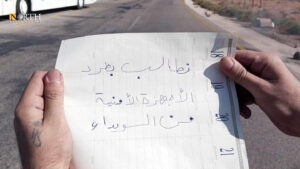 NORTH
نطالب بطرد
الأجهزة الأمنية
من السويداء